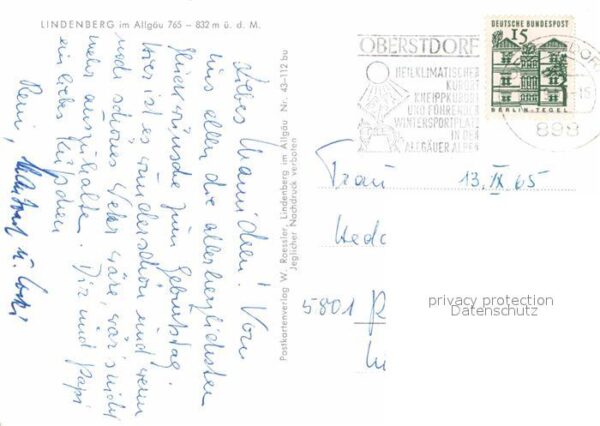 LINDENBERG im Allgäu 765 – 832 m ü. d. M.
Liebes Mamichen! Von
uns allen die allerherzlichsten
Glückwünsche zum Geburtstag.
Hier ist es wunderschön und wenn
und schönes Wetter wäre, wär's nicht
mehr auszuhalten. Dir und Papi
ein liebes Küßchen
Reni,
Postkartenverlag W. Roessler, Lindenberg im Allgäu Nr. 43-112 bu
Jeglicher Nachdruck verboten
OBERSTDORF
HEILKLIMATISCHER
KURORT
KNEIPPKURORT
UND FÜHRENDER
WINTERSPORTPLATZ
IN DEN
ALLGÄUER ALPEN
DEUTSCHE BUNDESPOST
15
BERLIN-TEGEL
898
Frau 13. IX. 65
5801
privacy protection
Datenschutz